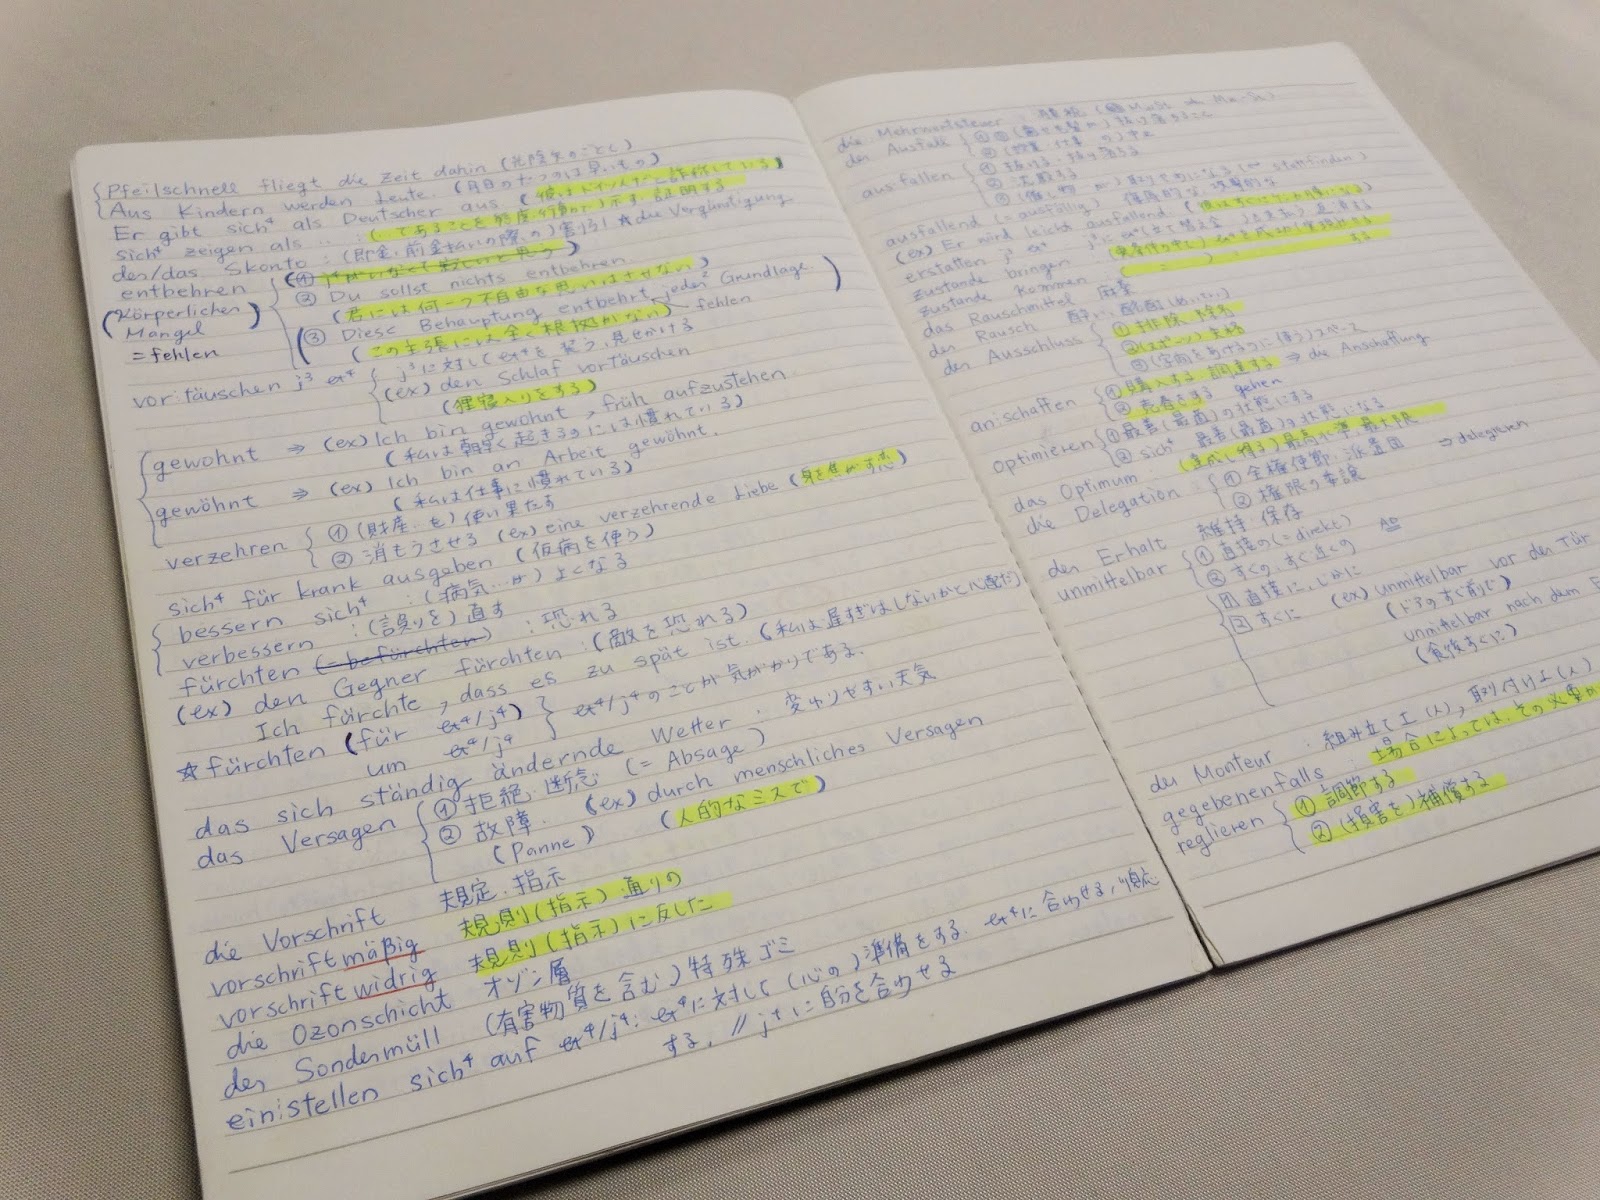 Pfeilschnell fliegt die Zeit dahin (光陰矢のごとし)
Aus Kindern werden Leute. (月日のたつのは早いもの)
Er gibt sich⁴ als Deutscher aus (彼はドイツ人だと詐称している)
sich⁴ zeigen als … : (…であることを態度(行動)で)示す, 証明する
der/das Skonto : (即金, 前金払いの際の)割引 ☆die Vergünstigung
entbehren ①
② Du sollst nichts entbehren.
(君には何一つ不自由な思いはさせない)
(Körperlichen Mangel = fehlen)
③ Diese Behauptung entbehrt jeder² Grundlage
(この主張には全く根拠がない) fehlen
vor:täuschen j³ et⁴ j³に対してet⁴を装う, 見せかける
(ex) den Schlaf vortäuschen
(狸寝入りをする)
gewohnt ⇒ (ex) Ich bin gewohnt, früh aufzustehen.
(私は朝早く起きるのには慣れている)
gewöhnt ⇒ (ex) Ich bin an Arbeit gewöhnt.
(私は仕事に慣れている)
verzehren ① (財産を)使い果たす
② 消もうさせる (ex) eine verzehrende Liebe (身を焦がす恋)
sich⁴ für krank ausgeben (仮病を使う)
bessern sich⁴ : (病気…が) よくなる
verbessern : (誤りを)直す
fürchten (= befürchten) : 恐れる
(ex) den Gegner fürchten : (敵を恐れる)
Ich fürchte, dass es zu spät ist. (私は遅すぎはしないかと心配だ)
☆fürchten (für et⁴/j⁴) et⁴/j⁴のことが気がかりである.
um et⁴/j⁴
das sich ständig ändernde Wetter : 変わりやすい天気
das Versagen ① 拒絶, 断念 (= Absage)
② 故障. (ex) durch menschliches Versagen
(Panne) (人的なミスで)
die Vorschrift 規定, 指示
vorschriftmäßig 規則(指示)通りの
vorschriftwidrig 規則(指示)に反した
die Ozonschicht オゾン層
der Sondermüll (有害物質を含む) 特殊ゴミ
ein:stellen sich⁴ auf et⁴/j⁴: et⁴に対して(心の)準備をする. et⁴に合わせる, 順応
する. // j⁴に自分を合わせる
die Mehrwertsteuer
der Ausfall
aus:fallen ① 抜ける, 抜け落ちる
(⇔ stattfinden)
ausfallend (= ausfällig)
(ex) Er wird leicht ausfallend.
erstatten j³ et⁴
zustande bringen
zustande kommen
das Rauschmittel 麻薬
der Rausch 酔い, 酩酊(めいてい)
der Ausschluss ① 排除, 除名
② (スポーツ) 失格
an:schaffen ① 購入する, 調達する ⇒ die Anschaffung
② 売春をする gehen
optimieren ① 最善(最適)の状態にする
② sich⁴ 最善(最適)の状態になる
das Optimum (達成し得る)最高水準, 最大限
die Delegation : ① 全権使節, 派遣団 ⇒ delegieren
② 権限の委譲
der Erhalt 維持, 保存
unmittelbar ① 直接の(= direkt)
② すぐの, すぐ近くの
① 直接に, じかに
② すぐに (ex) unmittelbar vor der Tür
(ドアのすぐ前で)
unmittelbar nach dem
(食後すぐに)
der Monteur : 組み立て工(人), 取り付け工(人)
gegebenenfalls : 場合によっては, その必要が
reglieren ① 調節する
② (損害を)補償する